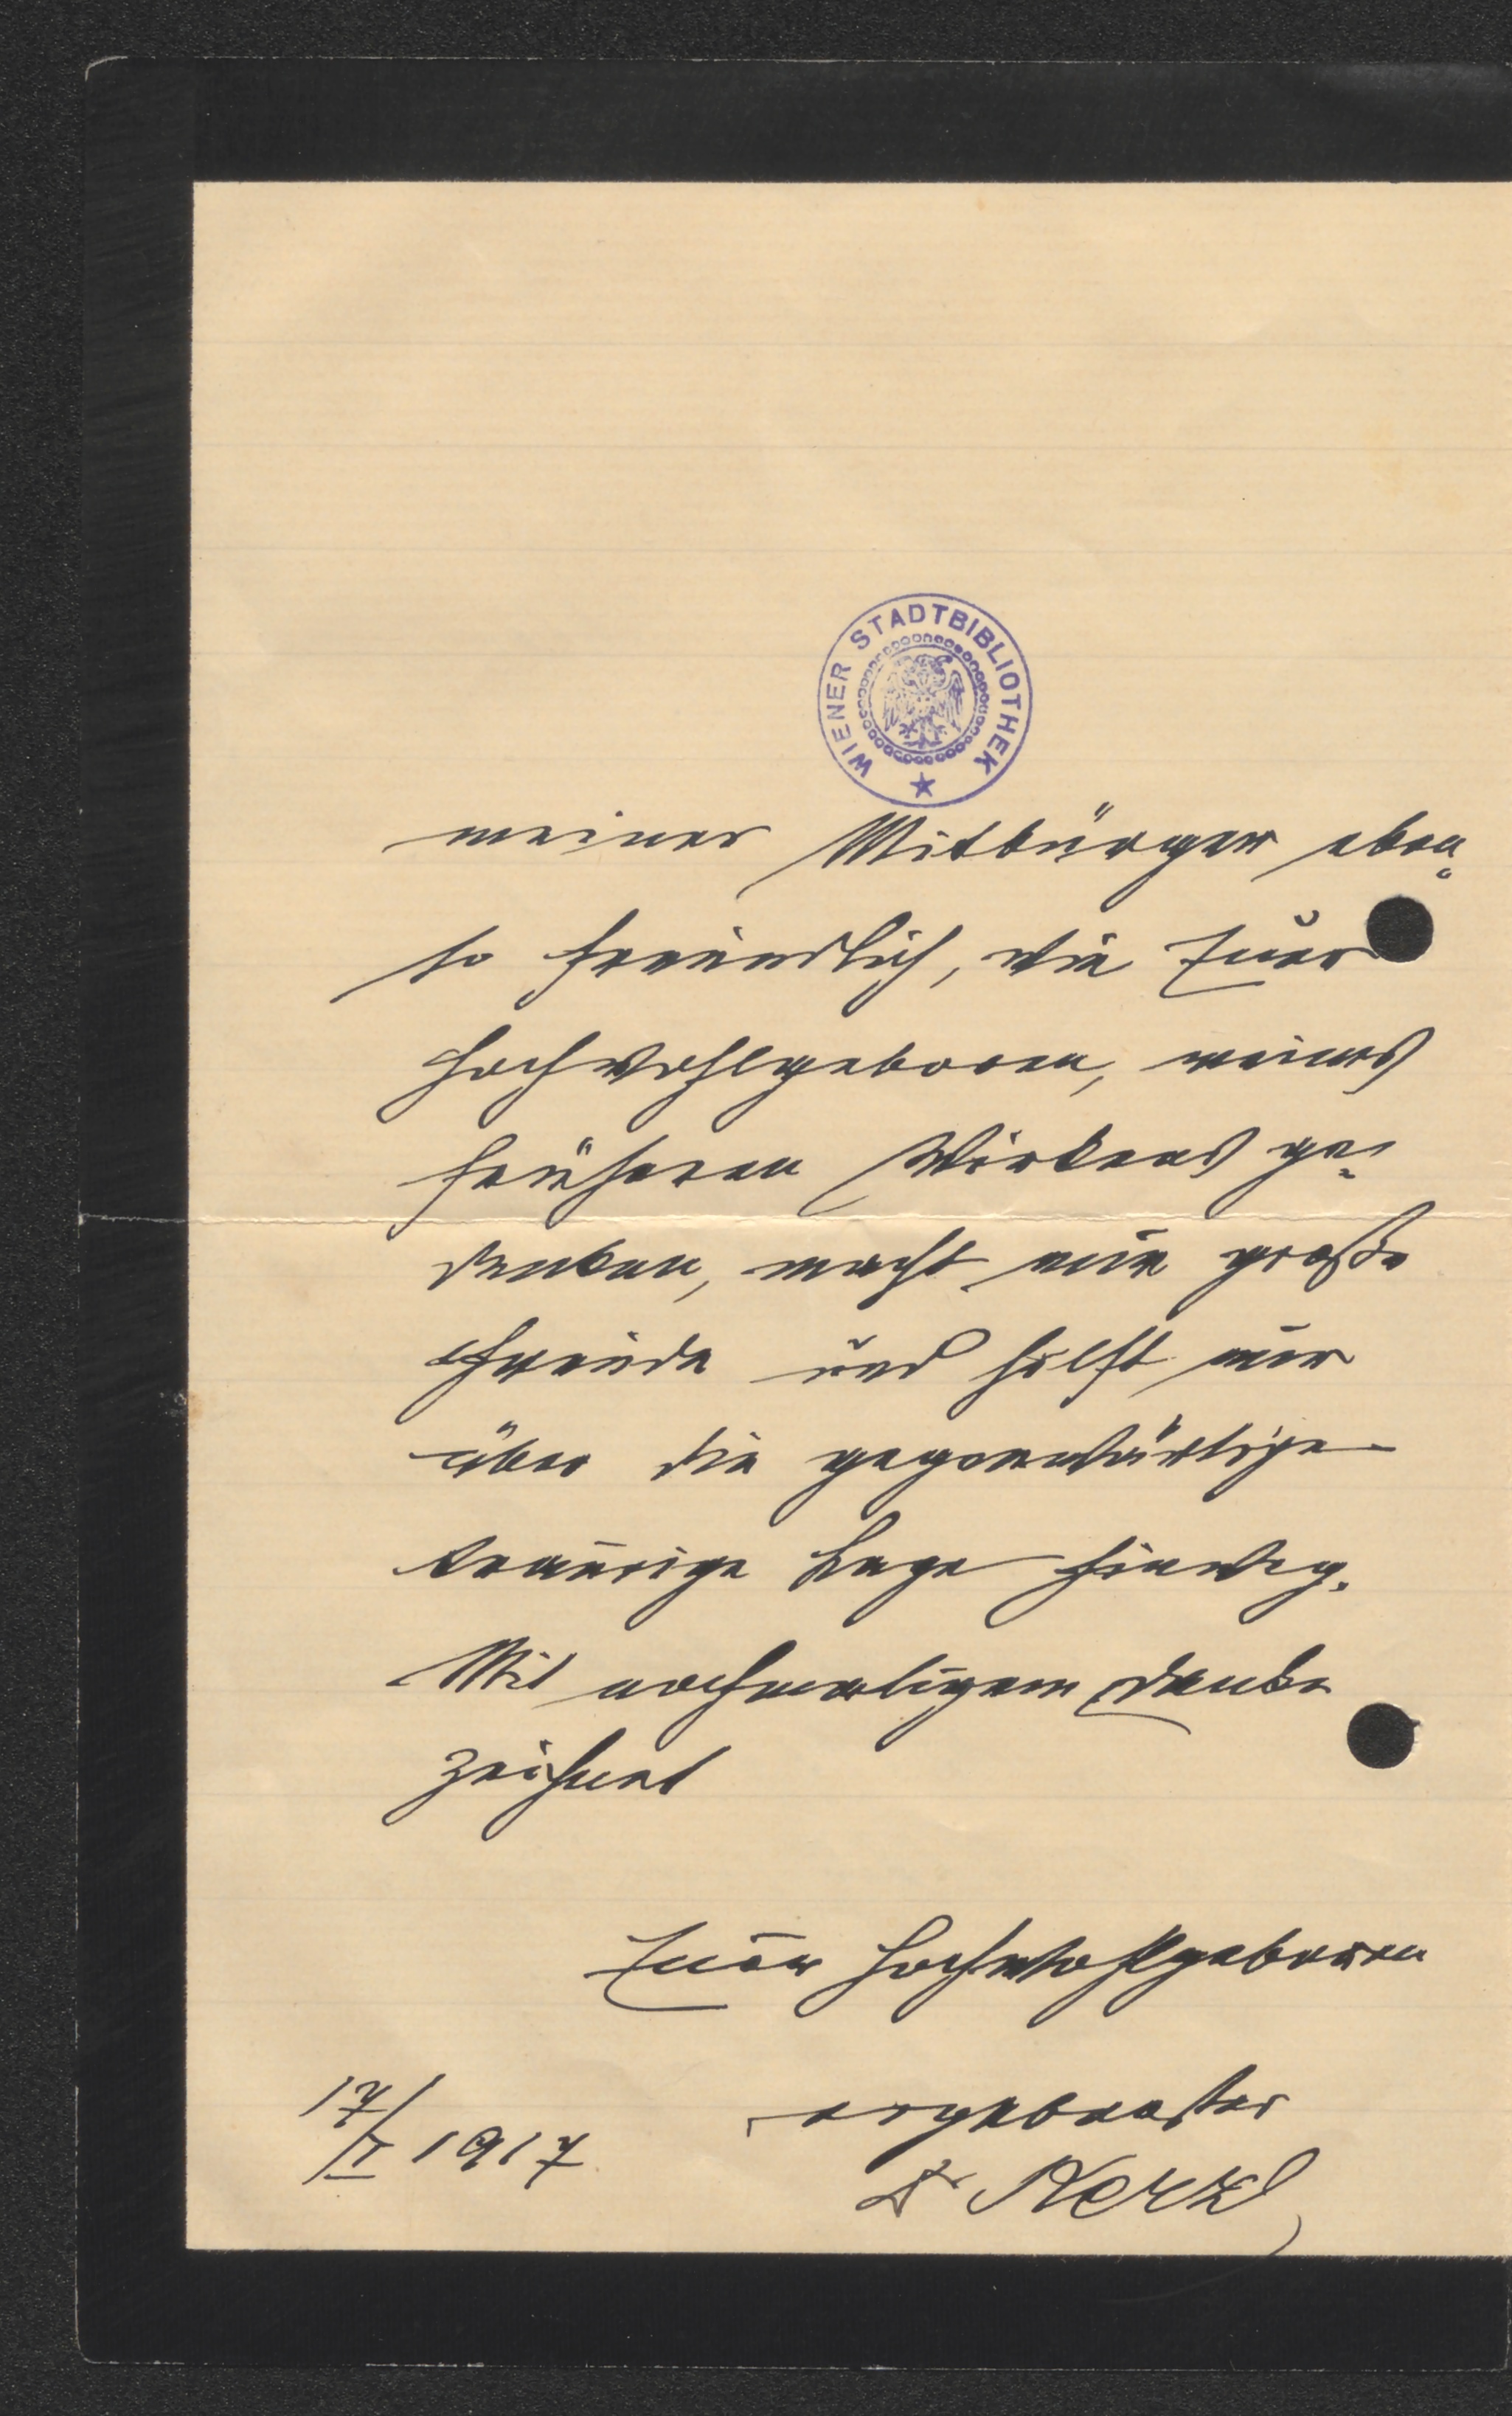 WIENER STADTBIBLIOTHEK
meiner Mitbürger eben-
so freundlich, wie Euer
Hochwohlgeboren, meines
früheren Wirkens ge-
denken, macht mir große
Freude und hilft mir
über die gegenwärtige
traurige Lage hinweg.
Mit nochmaligem Danke
zeichnet
Euer Hochwohlgeboren
ergebenster
17/I 1917
Dr Kerzl